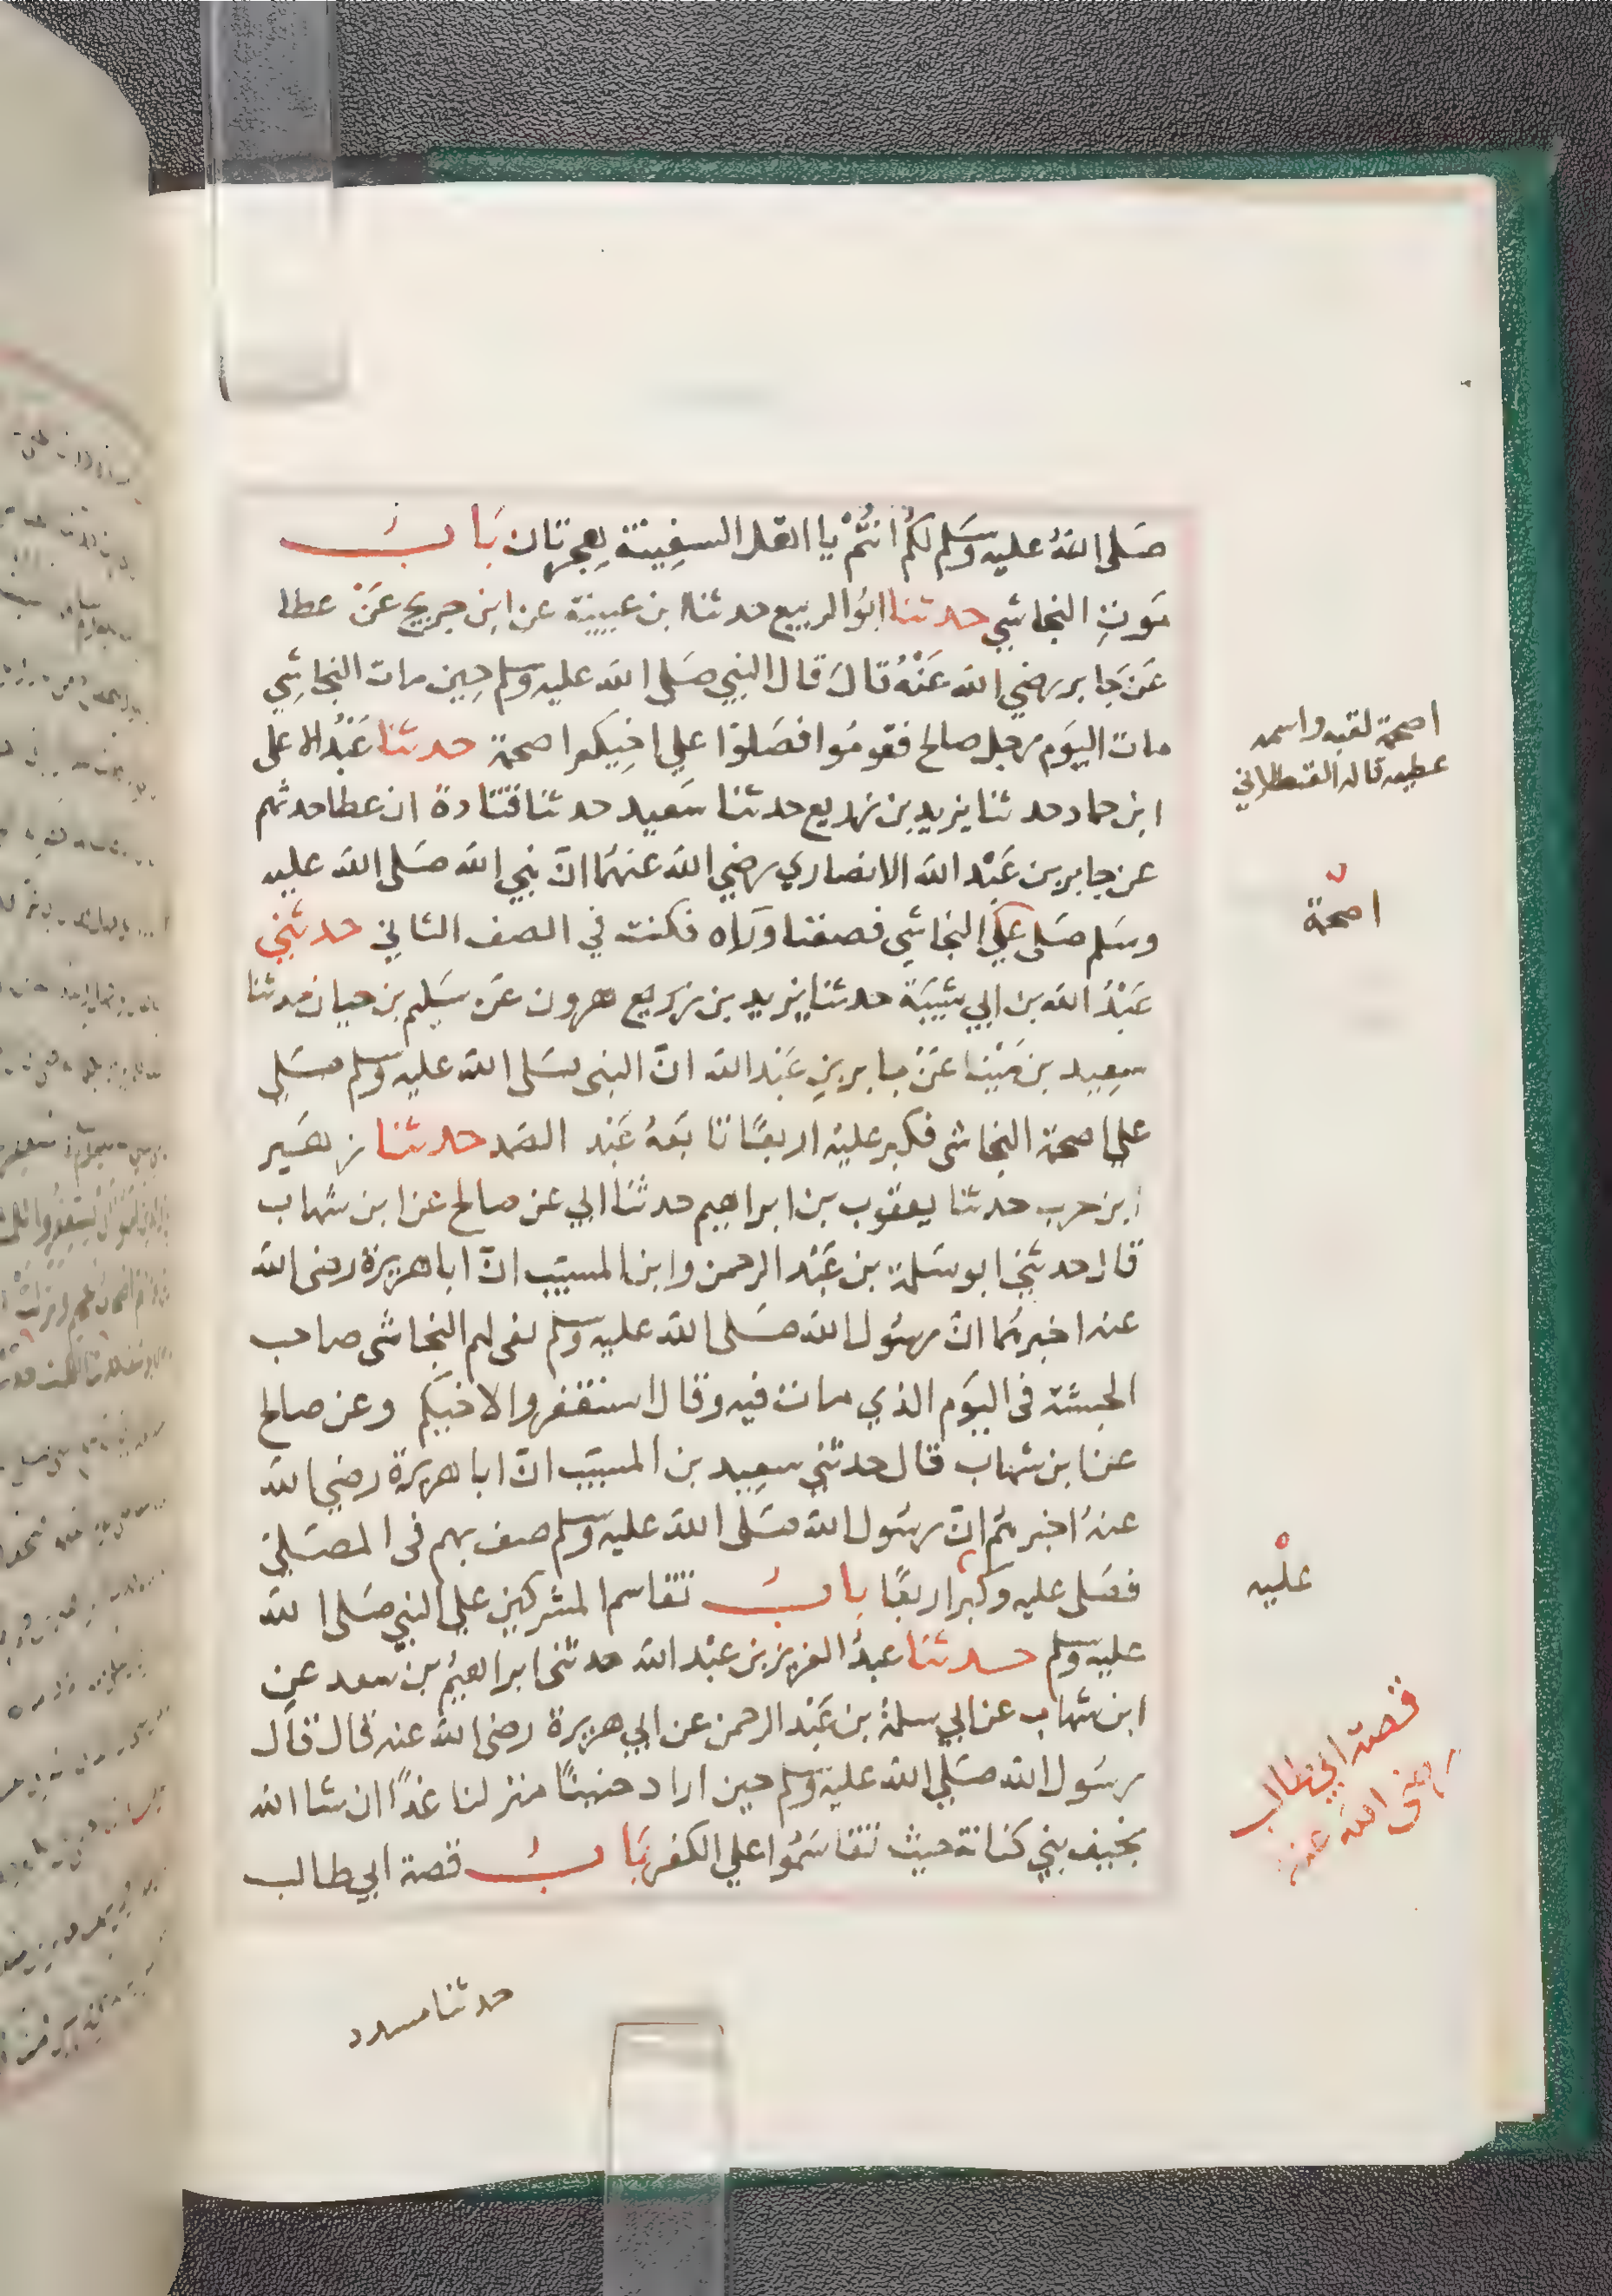 صَلى اللهُ عليه وَسَلم لكُم انتُمْ يا اهل السفِينة هِجرتان بَابُ
مَوتِ النجاشي حدثنا ابوُ الربيع حدثنا ابن عيينة عن ابن جريج عَنْ عطا
عَن جَابر رضي الله عَنْهُ قالَ قال النبي صَلى الله عليه وسلم حِين مات النجاشِي
مات اليَوم رجل صالح فقومُوا فصَلوا علي اخِيكم اصحمة حدثنا عَبْدُ الاعلى
ابن حماد حدثنا يزيد بن زريع حدثنا سَعيد حدثنا قتادة ان عطا حدثهم
عن جابر بن عَبْد الله الانصاري رضي الله عنهُما انّ نبي الله صَلى الله عليه
وسَلم صَلى عَلي النجاشي فصفنا ورَاه فكنت في الصف الثاني حدثني
عَبْدُ الله بن ابي شَيبَة حدثنا يزيد بن زريع هرون عَن سَليم بن حيان حدثنا
سِعِيد بن مَيْنا عَنْ جابر بنِ عَبْد الله انّ النبى صَلى الله عليه وسلم صَلي
علي اصحمة النجاشى فكبر عليْه اربعًا تابَعهُ عَبْد الصَمد حدثنا زهَير
ابن حرب حدثنا يعقوب بن ابراهيم حدثنا ابي عن صالح عن ابن شهاب
قال حدثني ابو سَلمة بن عَبْد الرحمن وابن المسيّب انّ ابا هريرة رضى الله
عنه اخبرهُما انّ رسُول الله صَلى الله عليه وسلم نعى لهم النجاشى صاحب
الحبشة فى اليَوم الذي مات فيه وقال استغفروا لاخيكم وعن صالح
عن ابن شهاب قال حدثني سِعِيد بن المسيّب انّ ابا هريرة رضي الله
عنهُ اخبرهُم انّ رسُول الله صَلى الله عليه وسلم صف بهم فى المصَلي
فصَلى عليه وكبر اربعًا بابُ تقاسم المشركين علي النبي صَلى الله
عليه وسلم حدثنا عبدُ العزيز بن عبْد الله حدثنى ابراهيمُ بن سعد عنِ
ابن شهاب عن ابي سلمة بن عَبْد الرحمن عن ابي هريرة رضى الله عنه قال قال
رسُول الله صَلي الله عليه وسلم حين اراد حنينًا منزلنا غدًا ان شا الله
بخيف بني كنانة حيث تقاسَمُوا علي الكفر بَابُ قصة ابي طالب
حدثنا مسدد
اصحمة لقبه واسمه
عطية قاله القسطلاني
اصحمة
عليْه
قصة ابي طالب
رضى الله عنه